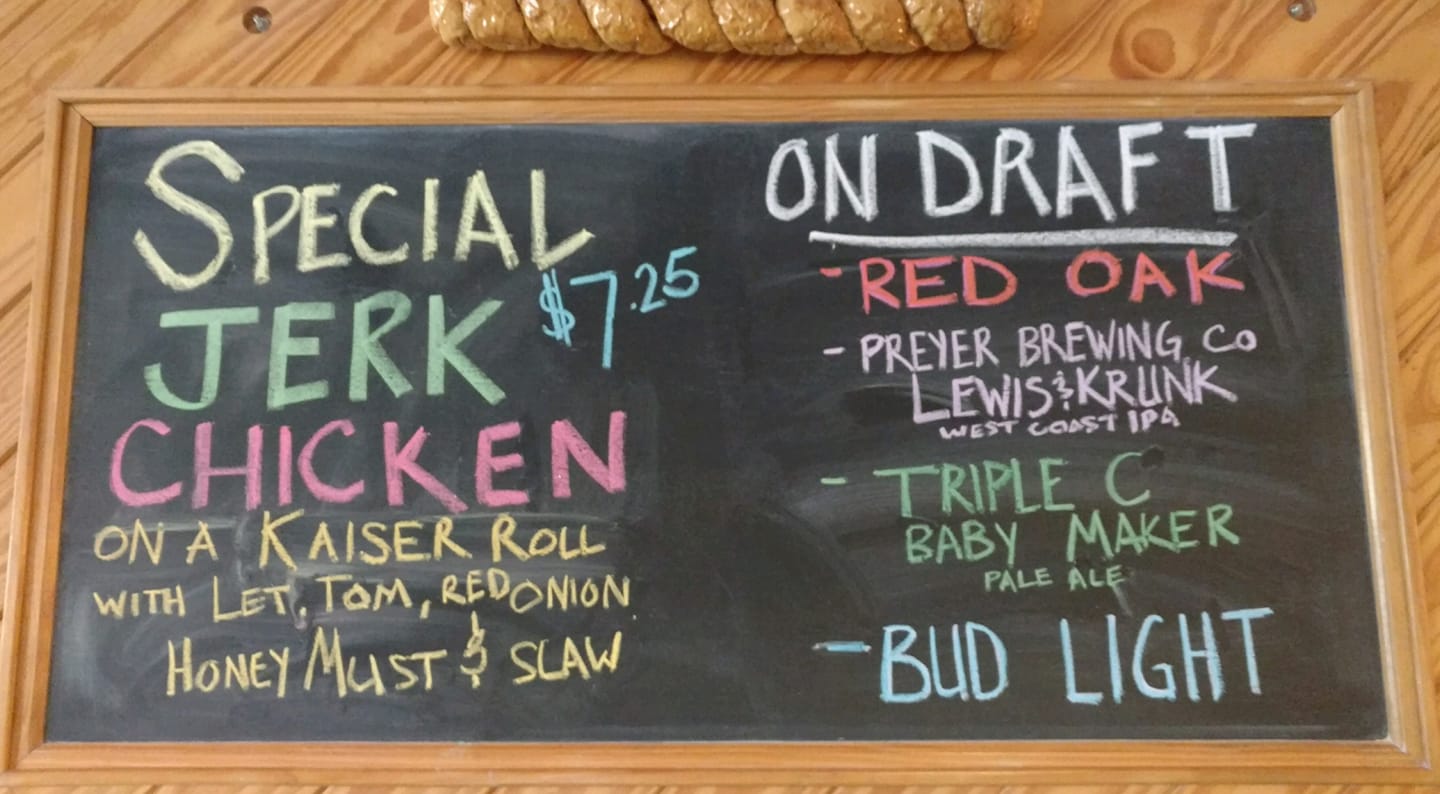 SPECIAL
JERK $7.25
CHICKEN
ON A KAISER ROLL
WITH LET, TOM, RED ONION
HONEY MUST & SLAW
ON DRAFT
- RED OAK
- PREYER BREWING CO
LEWIS & KRUNK
WEST COAST IPA
- TRIPLE C
BABY MAKER
PALE ALE
- BUD LIGHT